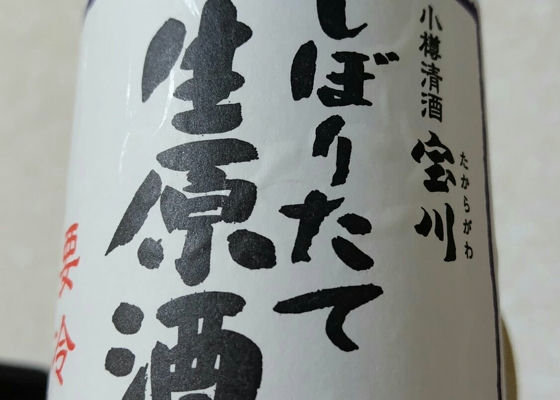 小樽清酒 宝川
たからがわ
しぼりたて
生原酒
要冷